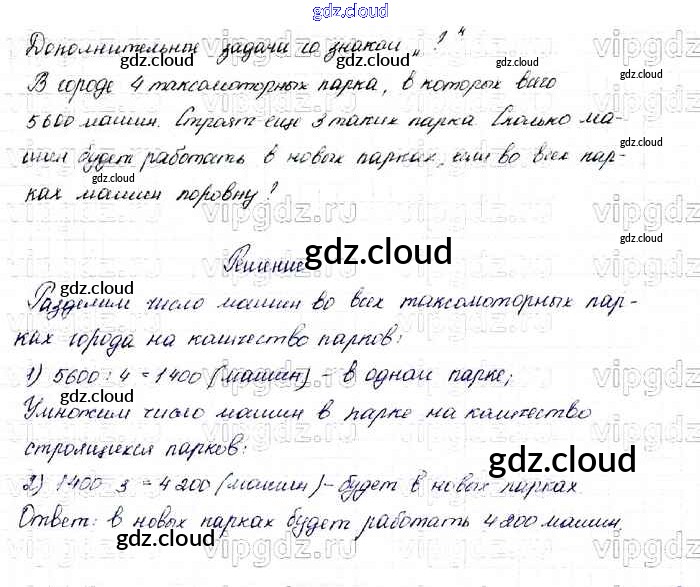 gdz.cloud
Дополнительные задачи со знаком „ ! "
В городе 4 таксомоторных парка, в которых всего
5600 машин. Строят еще 3 таких парка. Сколько ма-
шин будет работать в новых парках, если во всех пар-
ках машин поровну?
Решение
gdz.cloud
Разделим число машин во всех таксомоторных пар-
ках города на количество парков:
1) 5600 : 4 = 1400 (машин) - в одном парке;
Умножим число машин в парке на количество
строящихся парков:
gdz.cloud
2) 1400 · 3 = 4200 (машин) - будет в новых парках.
Ответ: в новых парках будет работать 4200 машин.
gdz.cloud